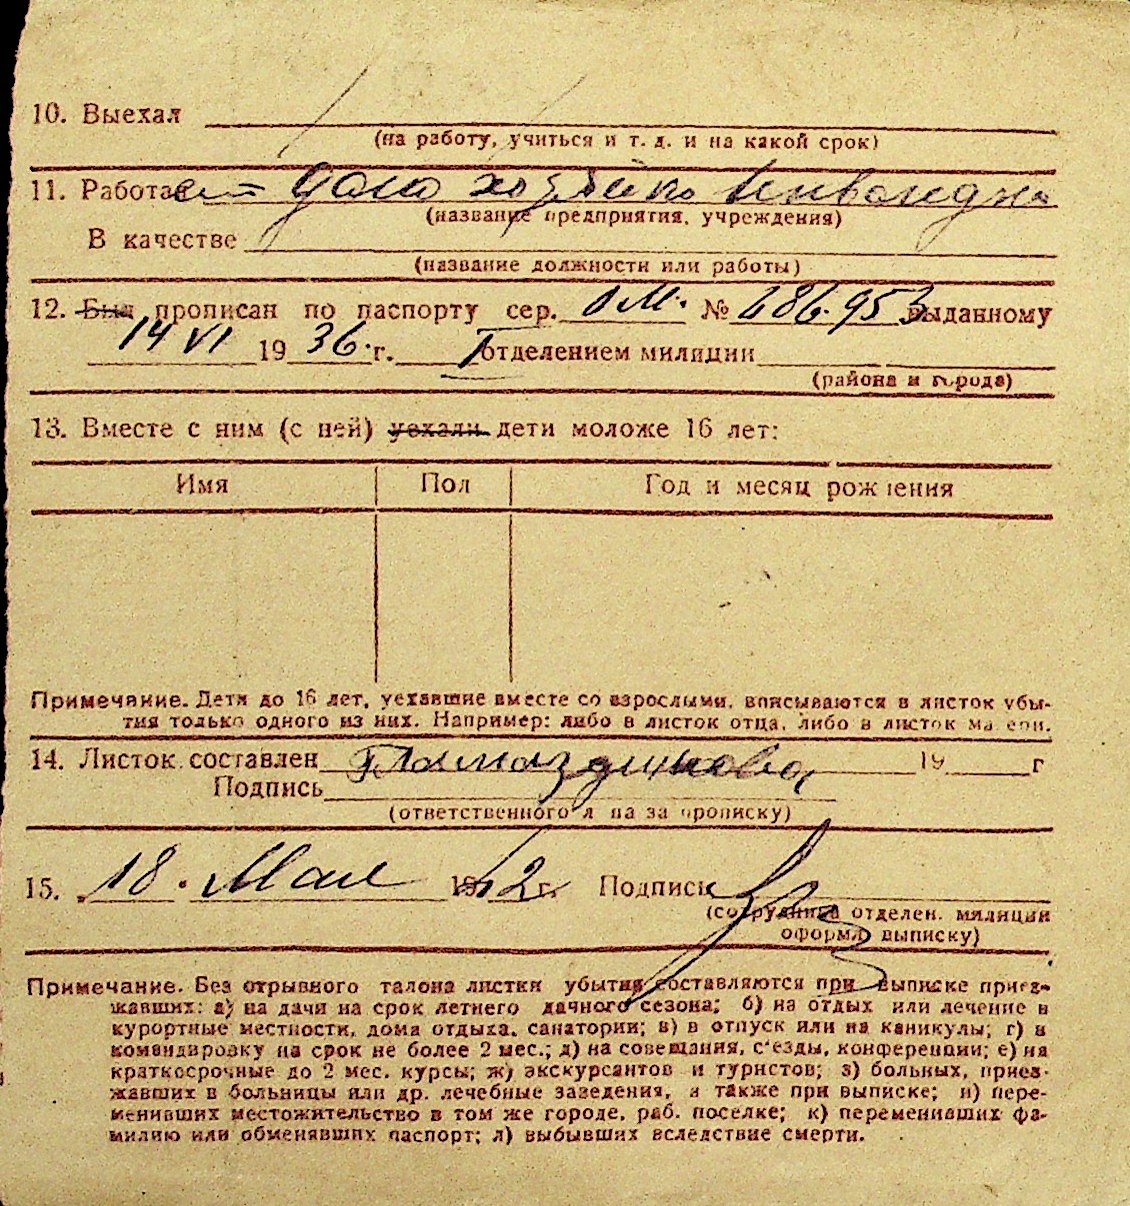 10. Выехал
(на работу, учиться и т. д. и на какой срок)
11. Работает
(название предприятия, учреждения)
В качестве
(название должности или работы)
12. Был прописан по паспорту сер. ОМ. № 686.953 выданному
14 VI 1936. г. I отделением милиции
(района и города)
13. Вместе с ним (с ней) уехали дети моложе 16 лет:
Имя Пол Год и месяц рождения
Примечание. Дети до 16 лет, уехавшие вместе со взрослыми, вписываются в листок убы-
тия только одного из них. Например: либо в листок отца, либо в листок матери.
14. Листок составлен 19 г
Подпись
(ответственного л на за прописку)
15. 18. Мая 1942 г. Подпись
(сотрудника отделен. милиции
оформл выписку)
Примечание. Без отрывного талона листки убытия составляются при выписке приез-
жавших: а) на дачи на срок летнего дачного сезона; б) на отдых или лечение в
курортные местности, дома отдыха, санатории; в) в отпуск или на каникулы; г) в
командировку на срок не более 2 мес.; д) на совещания, с'езды, конференции; е) на
краткосрочные до 2 мес. курсы; ж) экскурсантов и туристов; з) больных, приез-
жавших в больницы или др. лечебные заведения, а также при выписке; и) пере-
менивших местожительство в том же городе, раб. поселке; к) переменивших фа-
милию или обменявших паспорт; л) выбывших вследствие смерти.